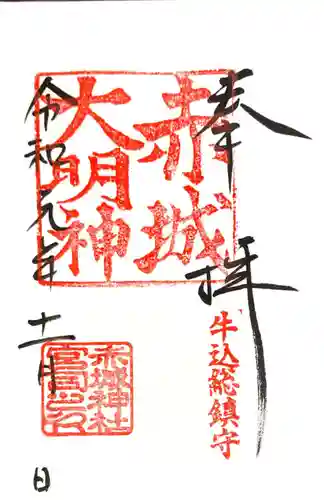 奉拝
牛込総鎮守
赤城
大明神
赤城神社
令和元年十一月 日